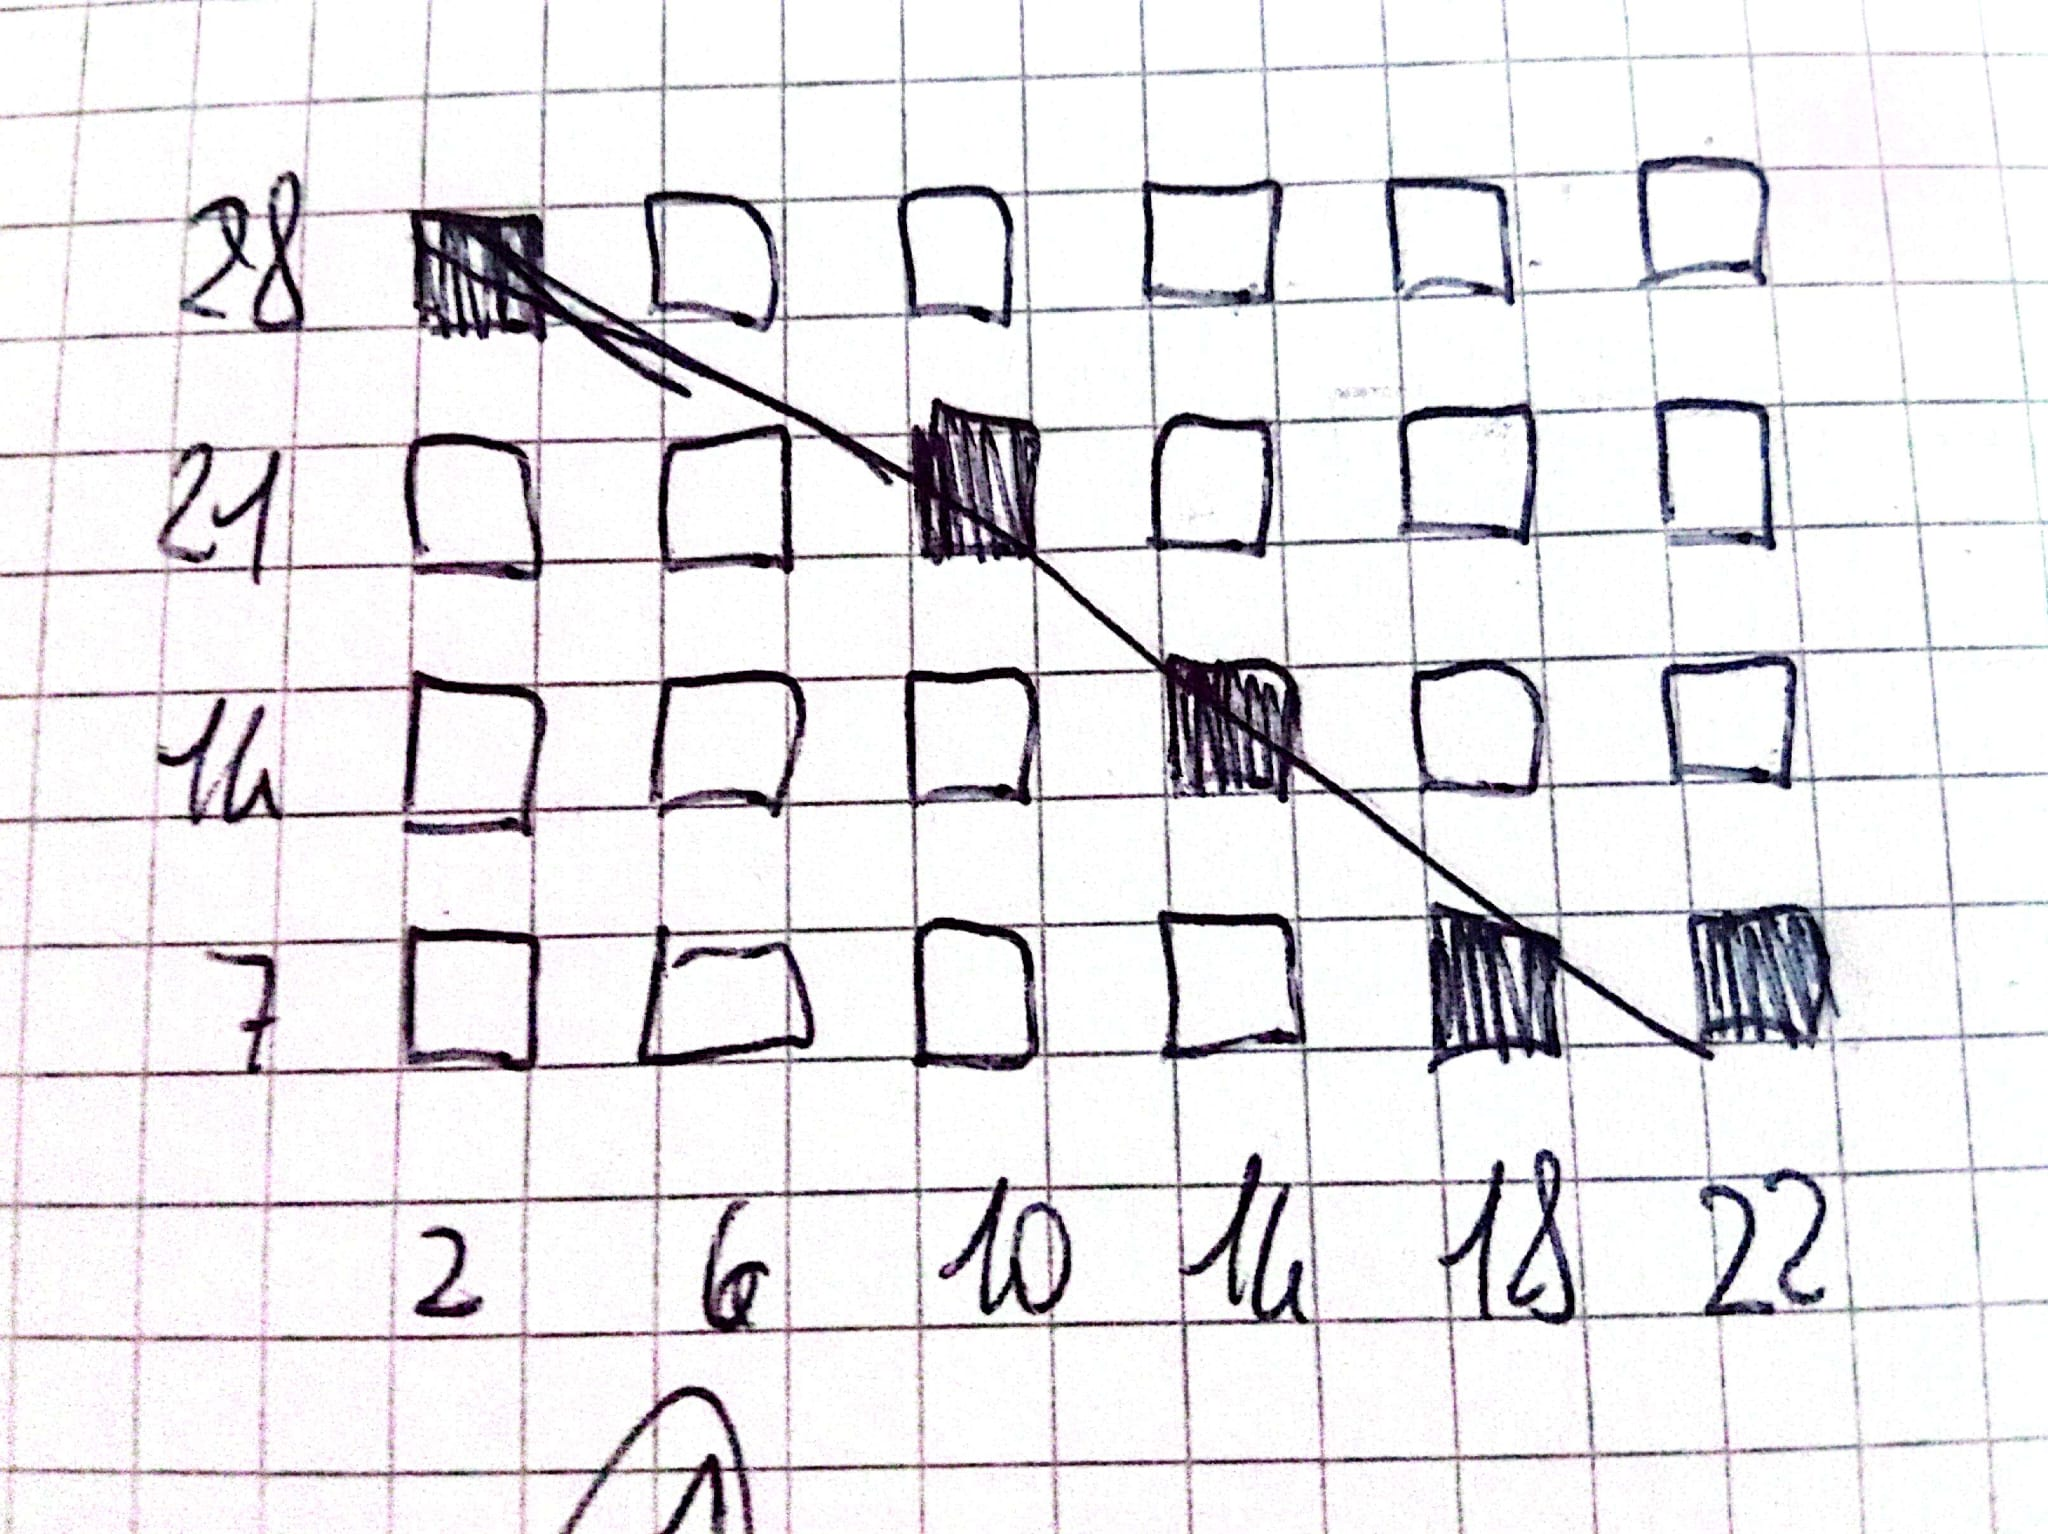 28
21
14
7
2 6 10 14 18 22